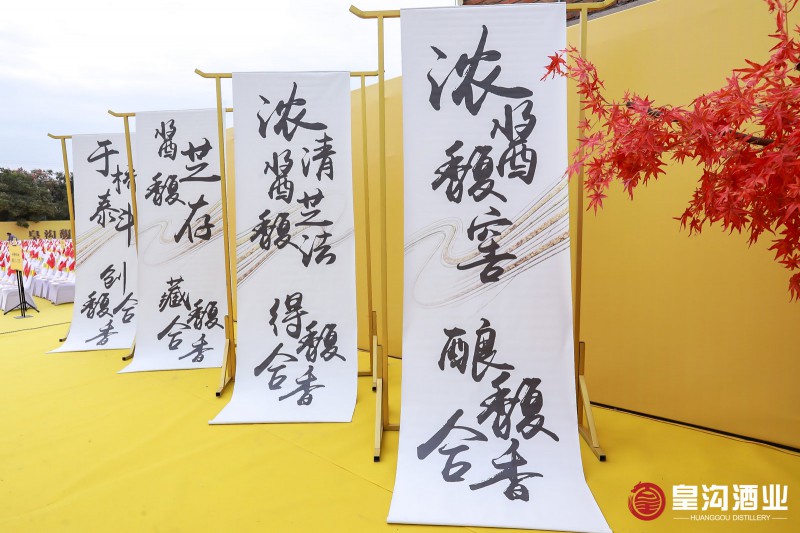 于桥泰斗
创馥合香
酱馥芝存
藏馥合香
浓酱馥清芝法
得馥合香
浓酱馥窖
酿馥合香
皇沟馥
皇沟酒业
HUANGGOU DISTILLERY